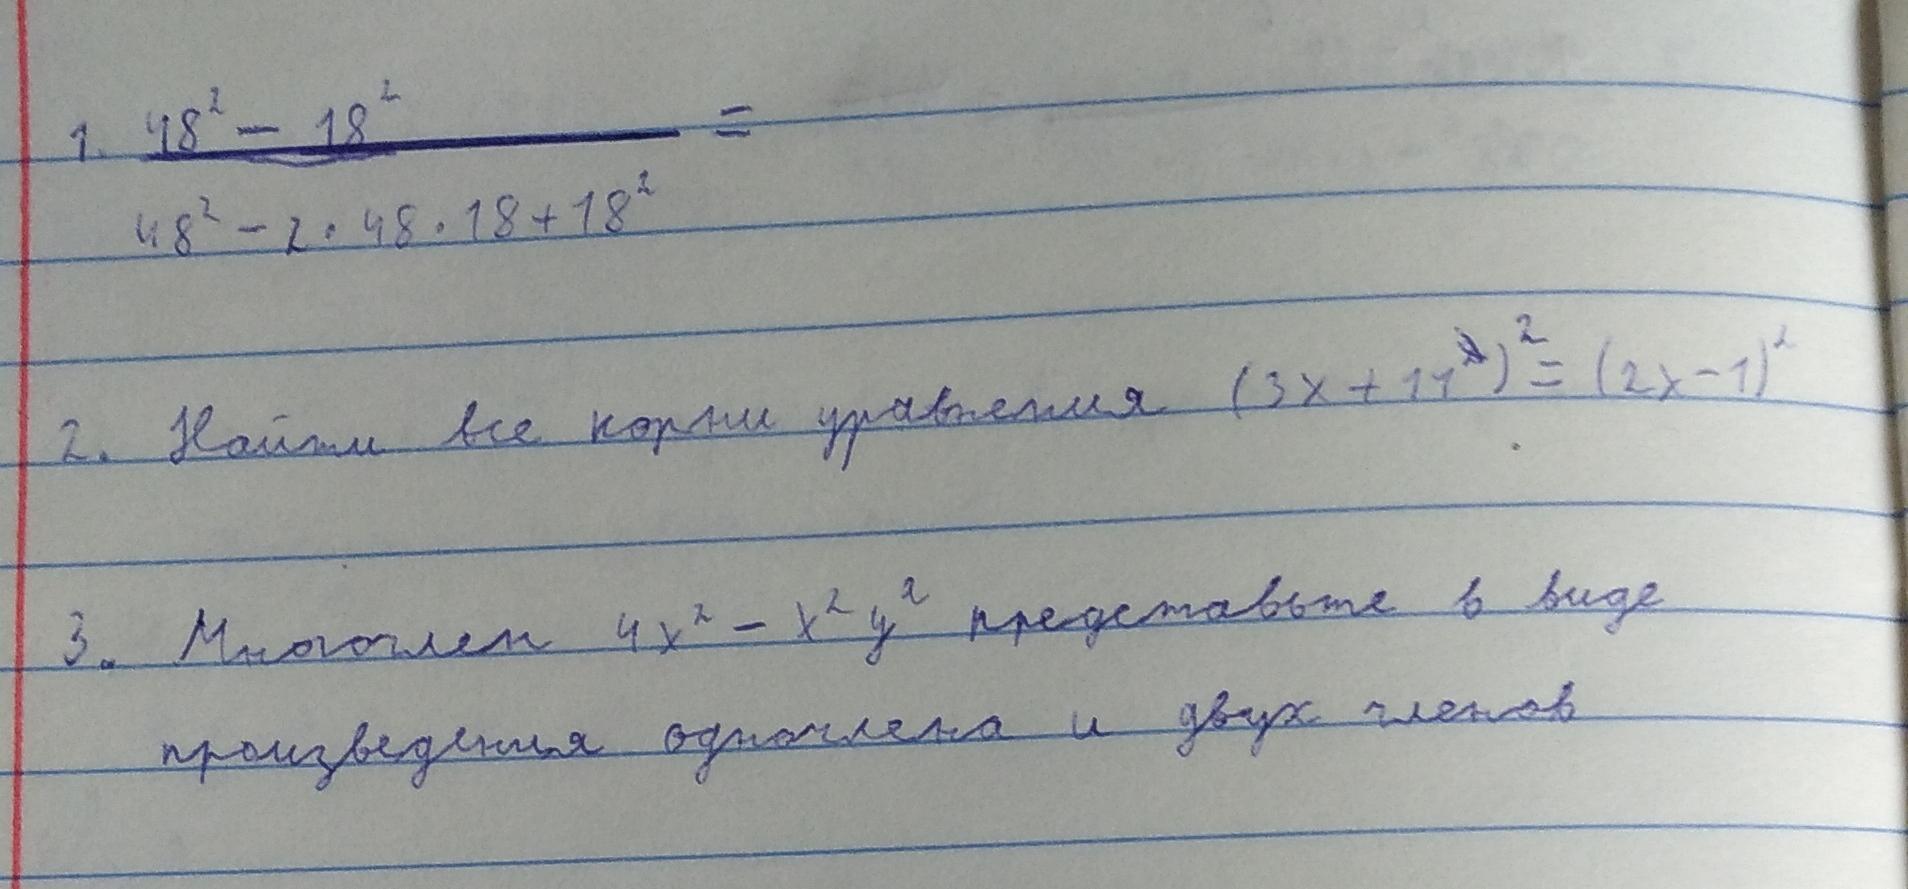 1. 48² - 18² =
48² - 2 · 48 · 18 + 18²
2. Найти все корни уравнения (3x + 11)² = (2x - 1)²
3. Многочлен 4x² - x²y² представьте в виде
произведения одночлена и двух членов